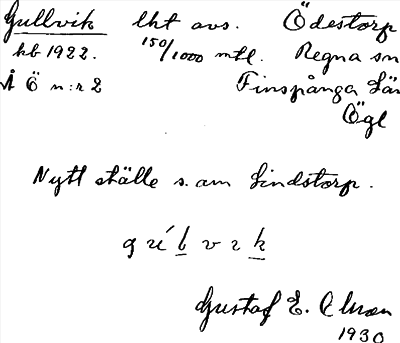 Gullvik lht avs. Ödestorp
kb 1922. 150/1000 mtl. Regna sn
Å Ö n:r 2 Finspånga Län
Ögl
Nytt ställe s. om Lindstorp.
g u ́ l v i k
Gustaf E.
1930